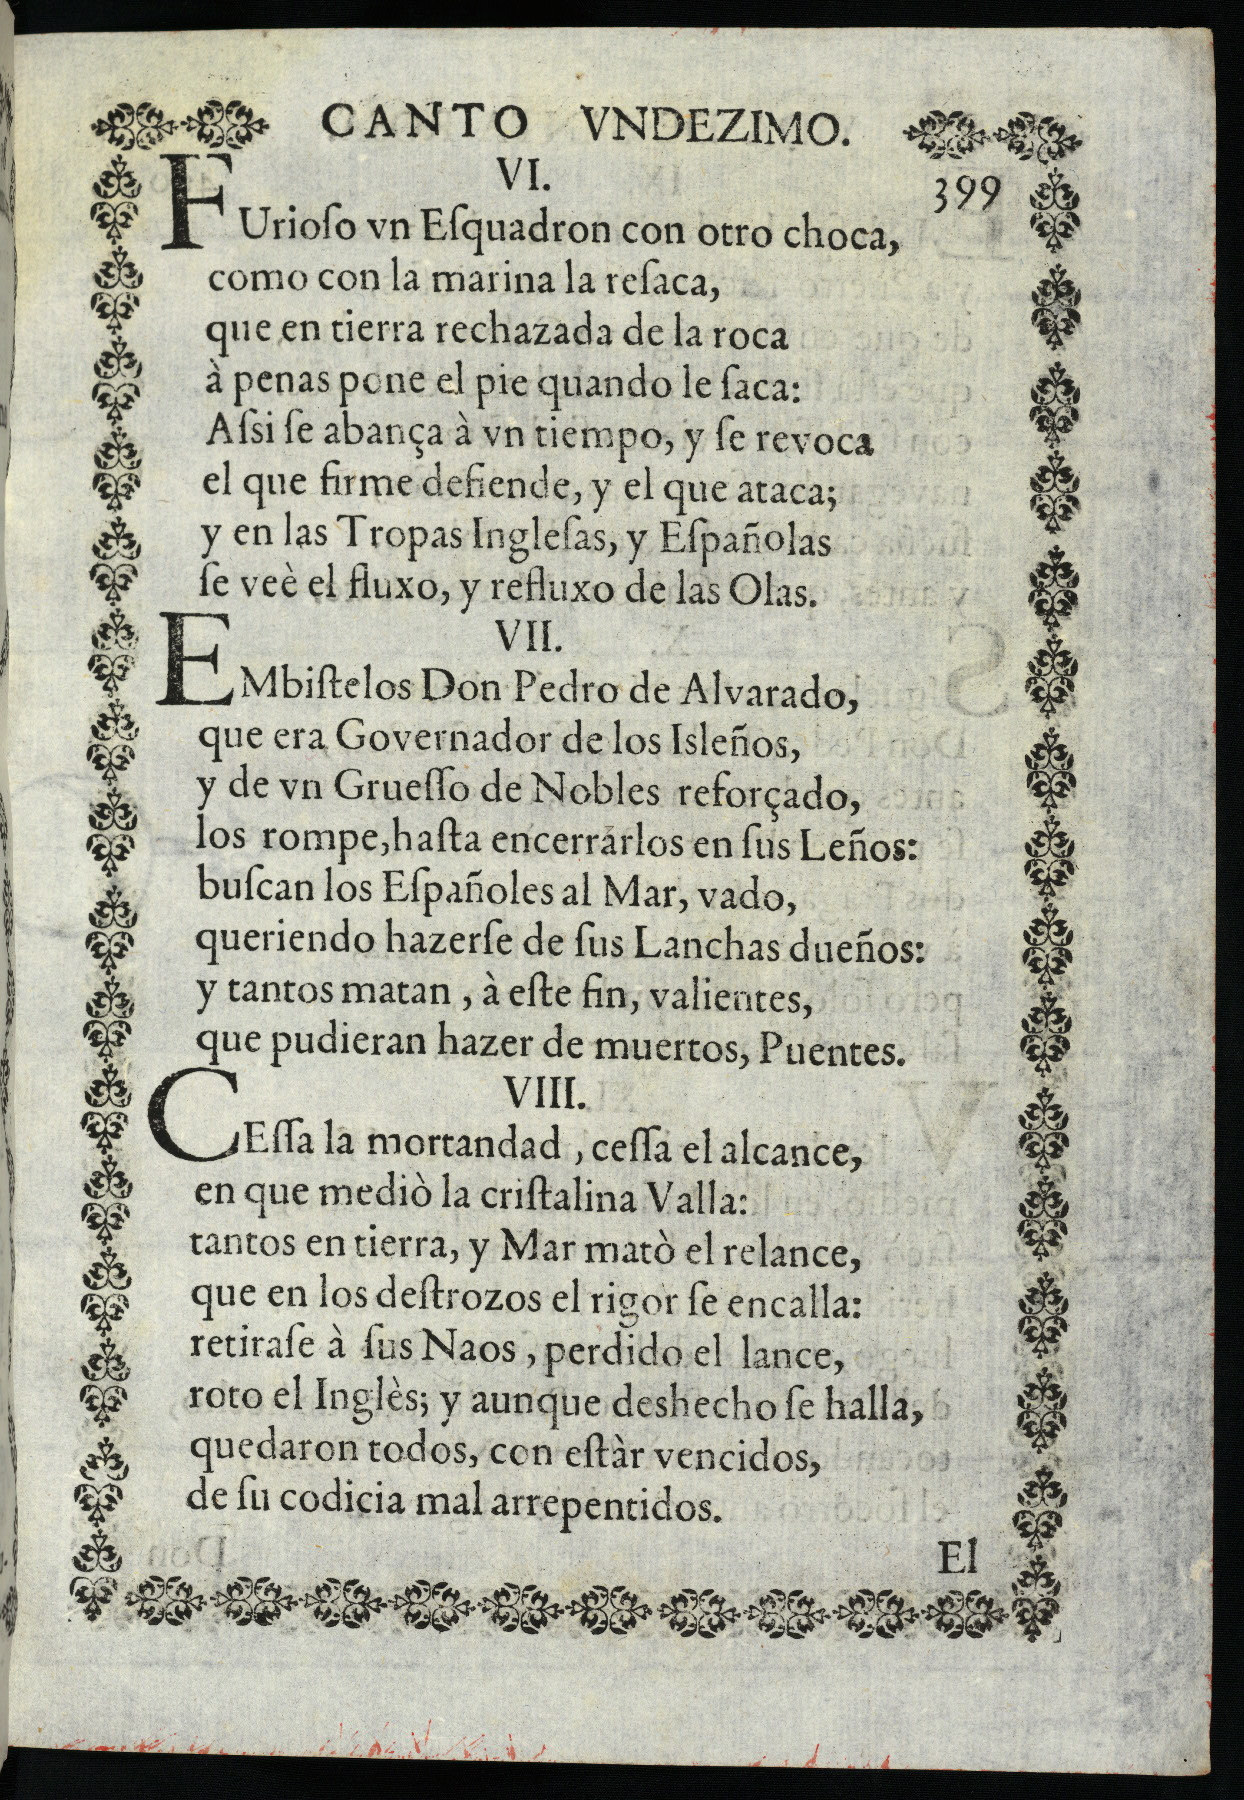 CANTO VNDEZIMO.
VI.
399
FUrioſo vn Eſquadron con otro choca,
como con la marina la reſaca,
que en tierra rechazada de la roca
à penas pone el pie quando le ſaca:
Aſsi ſe abança à vn tiempo, y ſe revoca
el que firme defiende, y el que ataca;
y en las Tropas Ingleſas, y Eſpañolas
ſe veè el fluxo, y refluxo de las Olas.
VII.
EMbiſtelos Don Pedro de Alvarado,
que era Governador de los Isleños,
y de vn Grueſſo de Nobles reforçado,
los rompe, haſta encerrarlos en ſus Leños:
buſcan los Eſpañoles al Mar, vado,
queriendo hazerſe de ſus Lanchas dueños:
y tantos matan, à eſte fin, valientes,
que pudieran hazer de muertos, Puentes.
VIII.
CEſſa la mortandad, ceſſa el alcance,
en que mediò la criſtalina Valla:
tantos en tierra, y Mar matò el relance,
que en los deſtrozos el rigor ſe encalla:
retiraſe à ſus Naos, perdido el lance,
roto el Inglès; y aunque deshecho ſe halla,
quedaron todos, con eſtàr vencidos,
de ſu codicia mal arrepentidos.
El